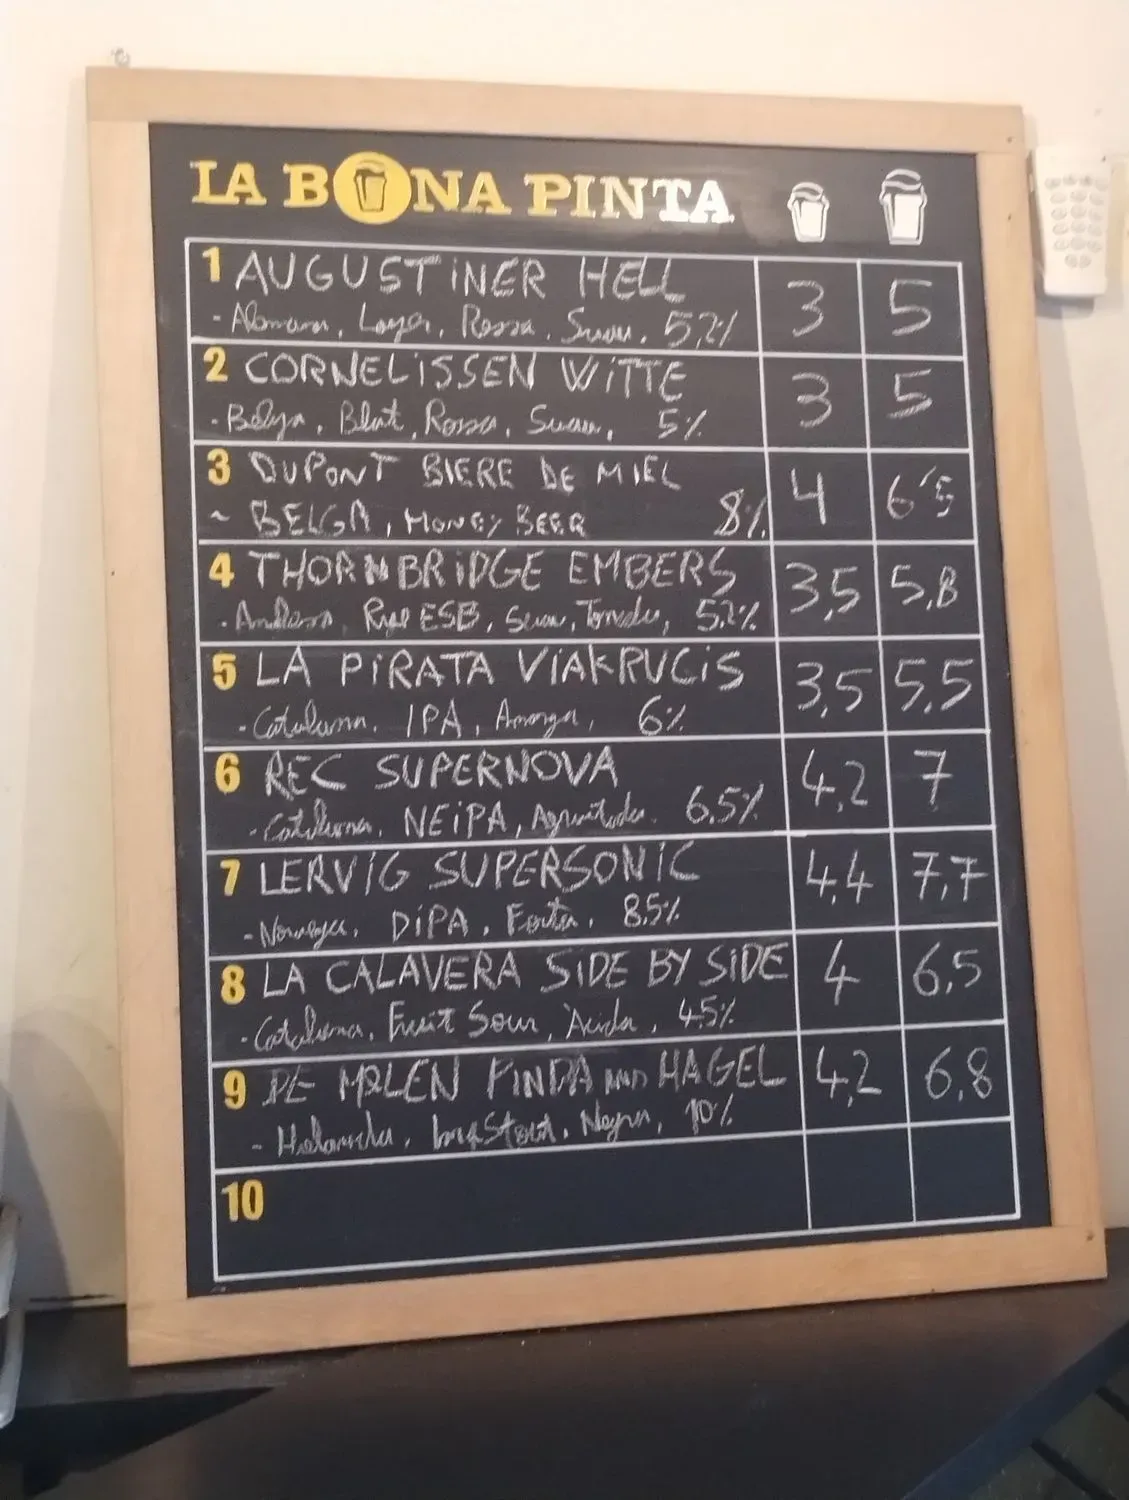 LA BONA PINTA
1 AUGUSTINER HELL 3 5
- Alemana, Lager, Rossa, Suau, 5,2%
2 CORNELISSEN WITTE 3 5
- Belga, Blat, Rossa, Suau, 5%
3 DUPONT BIERE DE MIEL 4 6'5
~ BELGA, HONEY BEER 8%
4 THORNBRIDGE EMBERS 3,5 5,8
- Anglesa, Rye ESB, Suau, Torrada, 5.2%
5 LA PiRATA ViAKRUCiS 3,5 5,5
- Catalana, IPA, Amarga, 6%
6 REC SUPERNOVA 4,2 7
- Catalana, NEiPA, Afruitada. 6.5%
7 LERViG SUPERSONiC 4,4 7,7
- Noruega, DiPA, Forta, 8.5%
8 LA CALAVERA SiDE BY SiDE 4 6,5
- Catalana, Fruit Sour, Àcida, 4.5%
9 DE MOLEN PINDA HAGEL 4,2 6,8
- Holandesa, Imp Stout, Negra, 10%
10